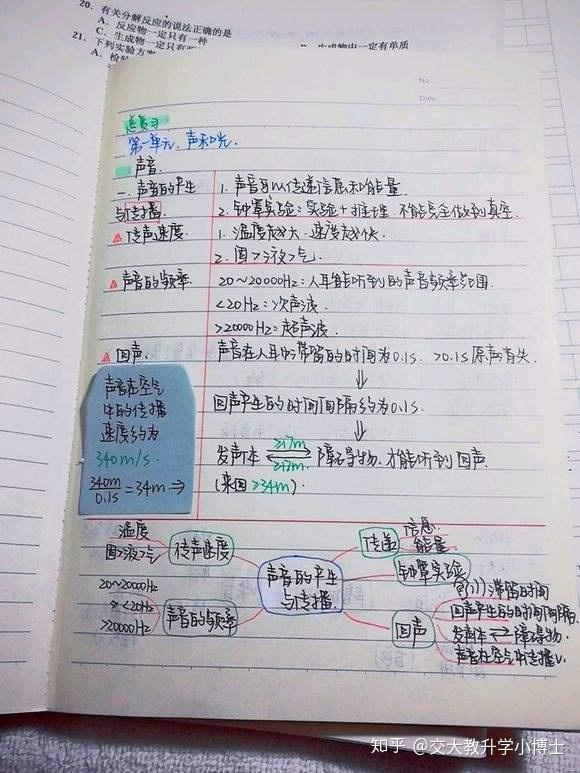 20. 有关分解反应的说法正确的是
A. 反应物一定只有一种
B. 生成物中一定有单质
C. 生成物一定只有
21. 下列实验方案
A. 检验
No
Date
总复习
第一单元. 声和光.
声音.
一. 声音的产生与传播.
1. 声音可以传递信息和能量.
2. 钟罩实验: 实验+推理 不能完全做到真空.
传声速度.
1. 温度越大. 速度越快.
2. 固>液>气.
声音的频率.
20~20000Hz: 人耳能听到的声音频率范围.
<20Hz: 次声波.
>20000Hz: 超声波.
回声.
声音在人耳中滞留的时间为0.1s. >0.1s 原声消失.
⇓
回声产生的时间间隔约为0.1s.
⇓
发声体 ≥17m ⇌ ≥17m 障碍物. 才能听到回声.
(来回≥34m).
声音在空气
中的传播
速度约为
340m/s.
340m/0.1s=34m ⇒
温度
固>液>气
传声速度
20~20000Hz
<20Hz
>20000Hz
声音的频率
声音的产生
与传播.
传递
信息.
能量.
钟罩实验
回声
滞留时间
回声产生的时间间隔.
发声体 ⇌ 障碍物.
声音在空气中传播v.
知乎 @交大教升学小博士